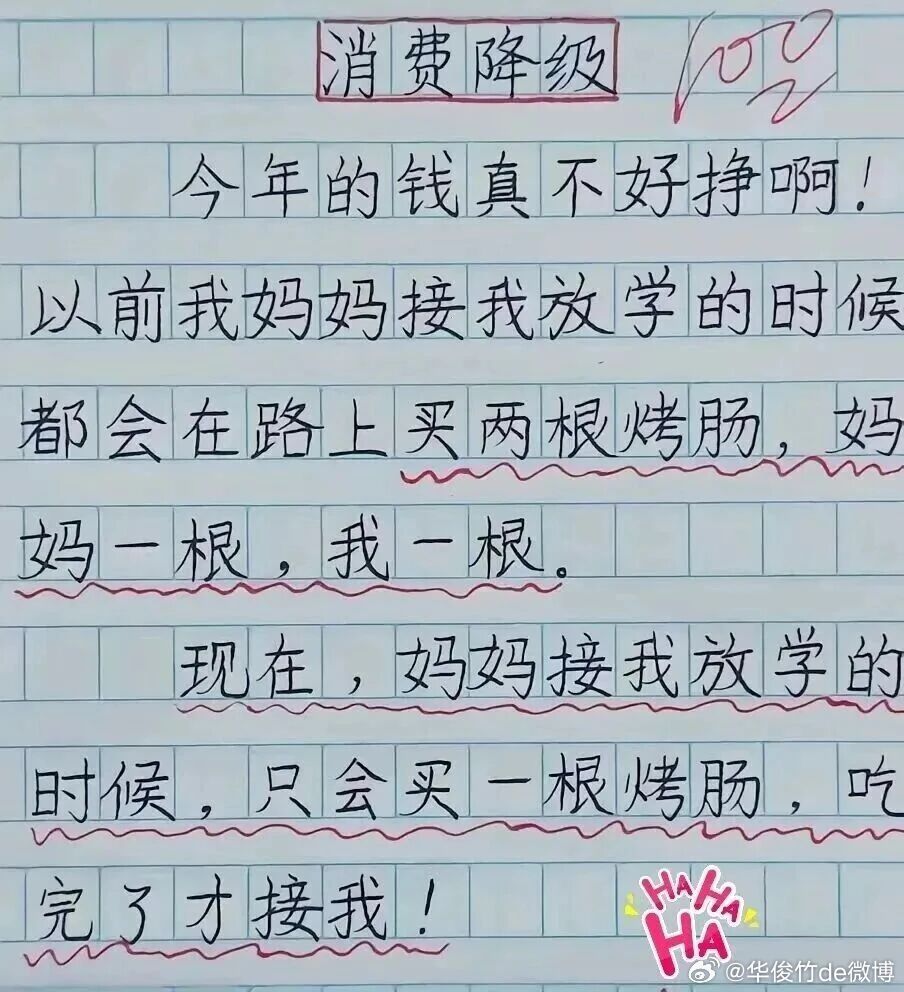 消费降级
100
今年的钱真不好挣啊！
以前我妈妈接我放学的时候
都会在路上买两根烤肠，妈
妈一根，我一根。
现在，妈妈接我放学的
时候，只会买一根烤肠，吃
完了才接我！
HA HA HA
@华俊竹de微博